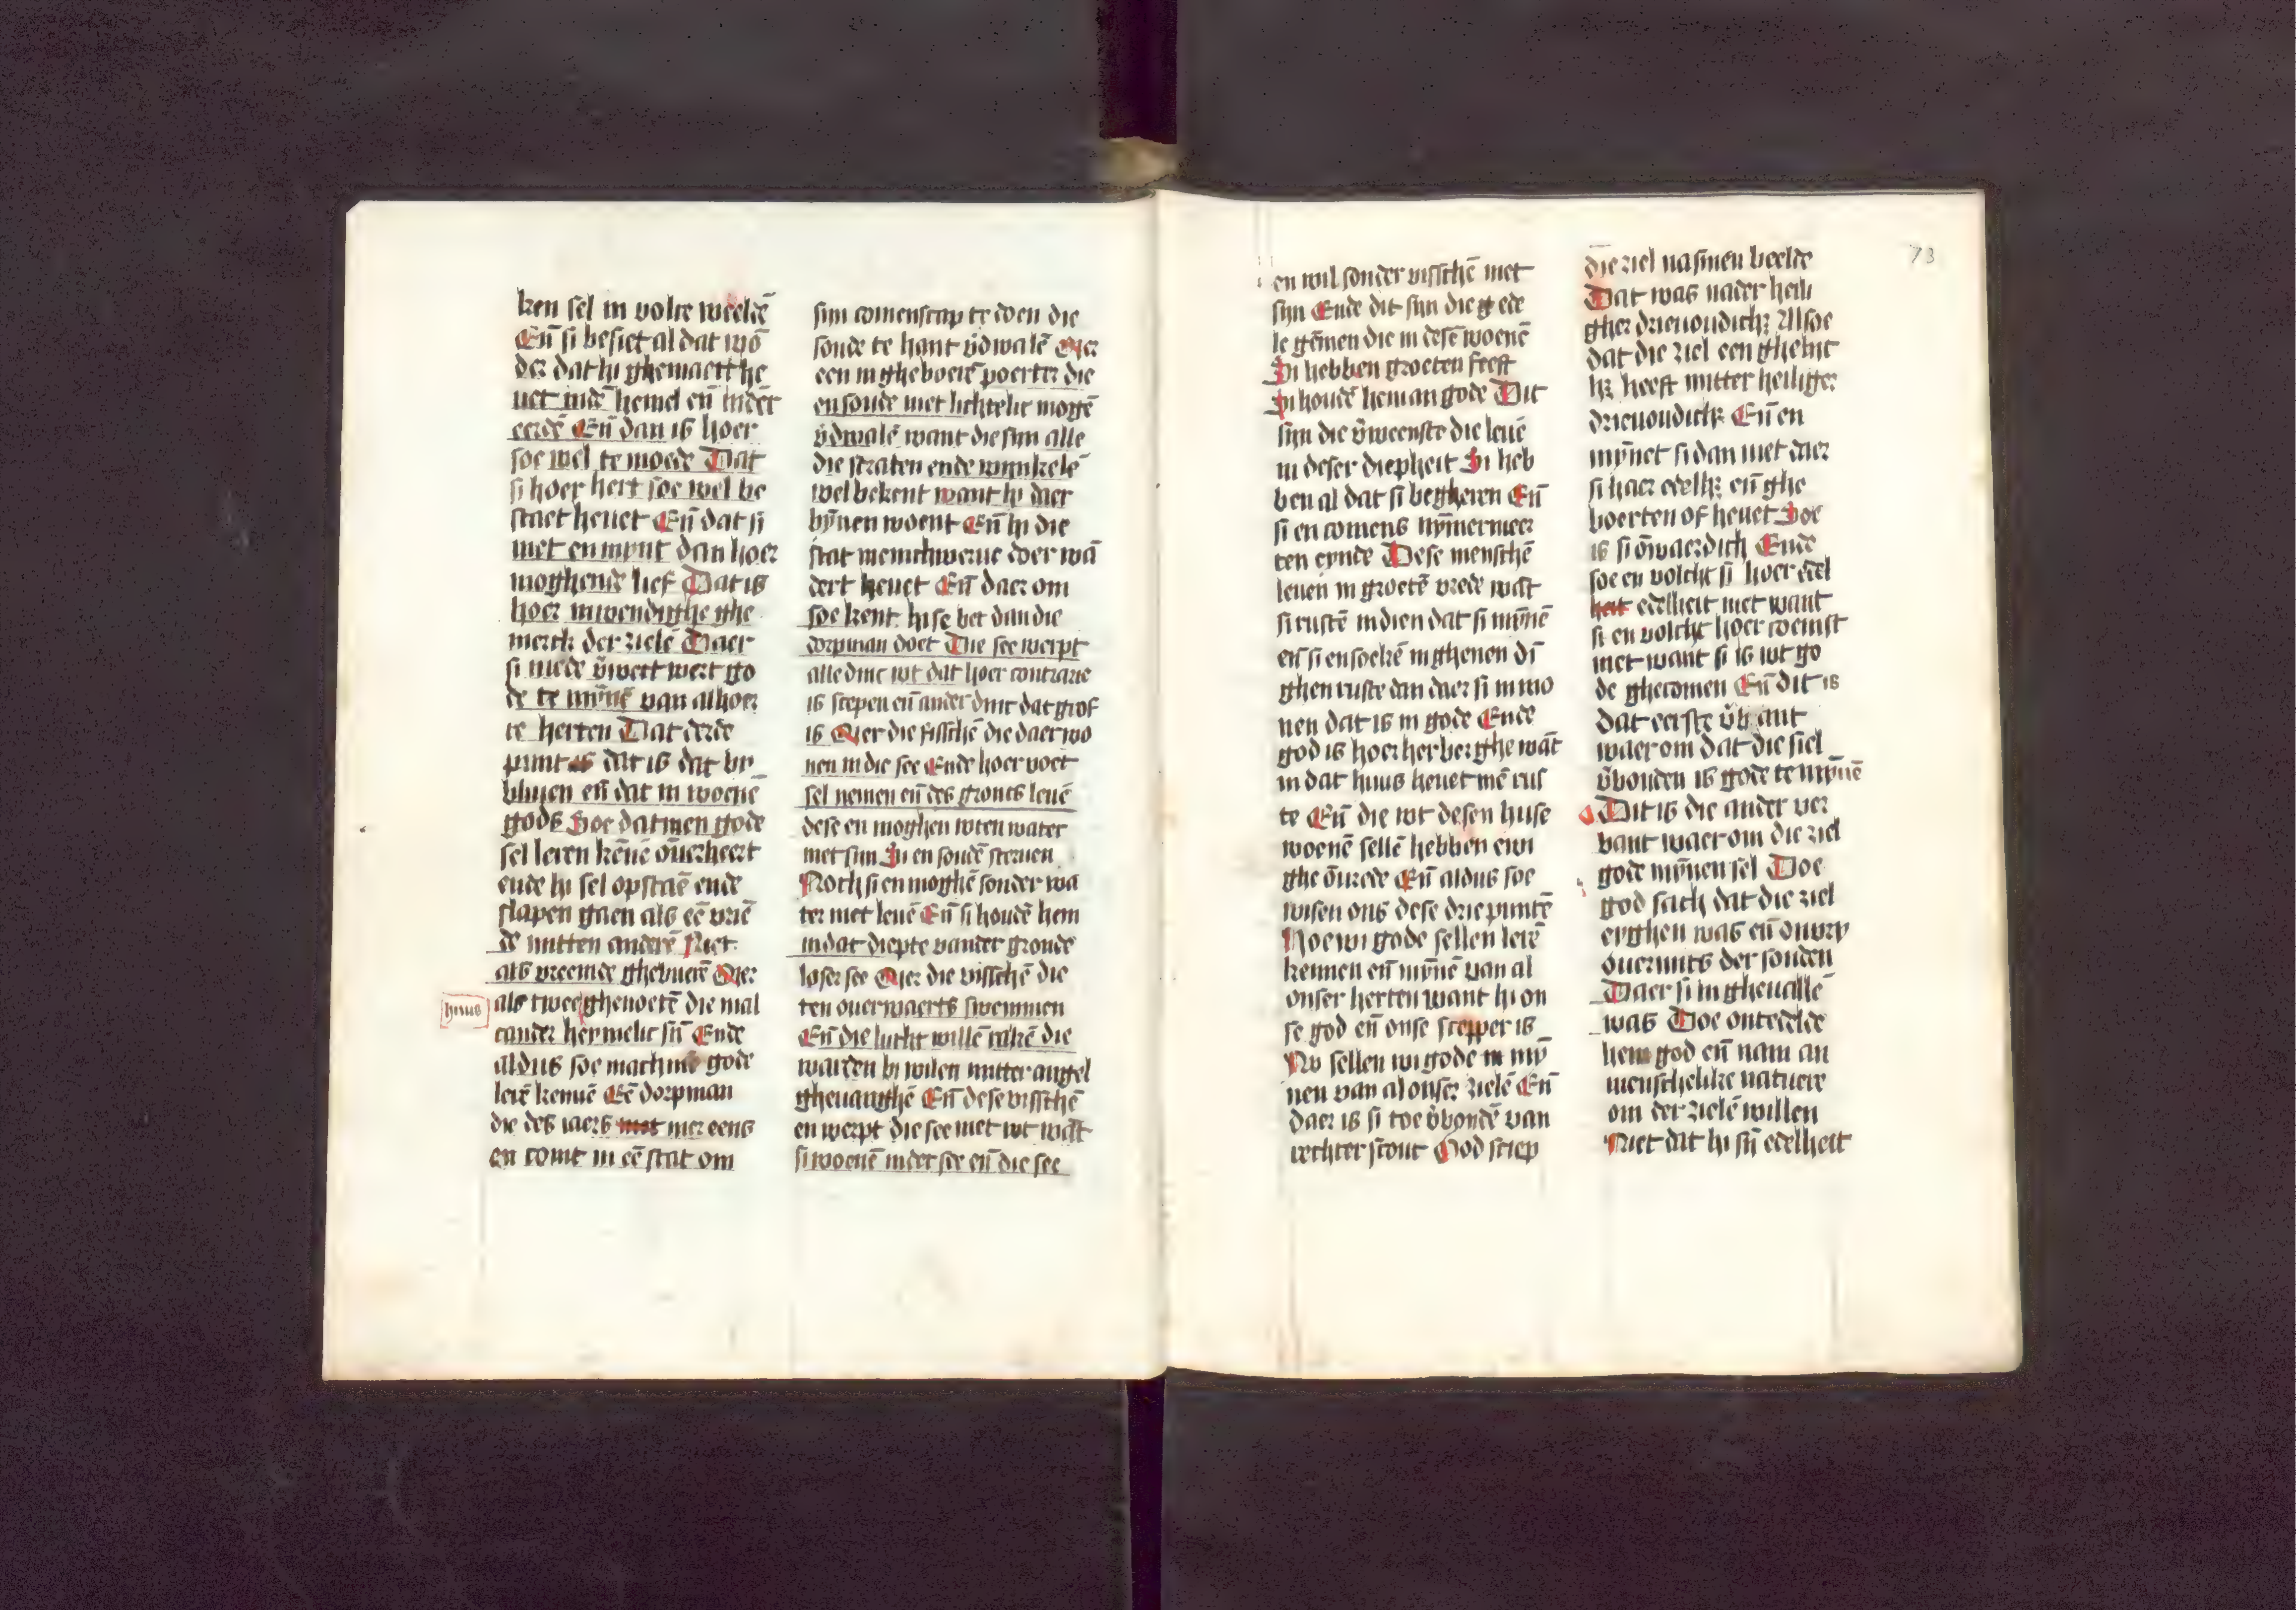 ken sel in volre weeldē
Eñ si besiet al dat wō
der dat hi ghemaect he
uet indē hemel eñ inder
eerdē Eñ dan is hoer
soe wel te moede Dat
si hoer hert soe wel be
staet heuet Eñ dat si
niet en mynt dan hoer
moghende lief Dat is
hoer inwendighe ghe
merck der zielē Daer
si mede v̄wect wert go
de te mȳnē van al hoer
re herten Dat derde
punt dat is dat bv
bliuen eñ dat in woenē
gods Hoe datmen gode
sel leren kēnē ōuerheert
ende hi sel opstaē ende
slapen gaen als eē vriē
de mitten anderē Niet
als vreemde ghebuerē Mer
als twee ghenoetē die mal
cander heymelic sīn Ende
aldus soe machmē gode
lerē kennē Eē dorpman
die des iaers mer eens
en comt in eē stat om
huus
sijn comenscap te doen die
soude te hant v̄dwalē Mer
een ingheborē poerter die
en soude niet lichtelic mogē
v̄dwalē want die sijn alle
die straten ende wynkelē
wel bekent want hi daer
bȳnen woent Eñ hi die
stat menichwerue doer wā
dert heuet Eñ daer om
soe kent hise bet dan die
dorpman doet Die see werpt
alle dinc wt dat hoer contrarie
is scepen eñ ander dinc dat grof
is Mer die fisschē die daer wo
nen in die see Ende hoer voet
sel nemen eñ des gronts leuē
dese en moghen wten water
niet sijn Si en soudē steruen
Noch si en moghē sonder wa
ter niet leuē Eñ si houdē hem
in dat diepte vander gronde
loser see Mer die visschē die
ten ouerwaerts swemmen
Eñ die lucht willē rakē die
warden bi wilen mitter angel
gheuanghē Eñ dese visschē
en werpt die see niet wt wāt
si woenē inder see eñ die see
en wil sonder visschē niet
sijn Ende dit sijn die g ede
le gēmen die in desē woenē
Si hebben groeten feest
Si houdē hem an gode Dit
sijn die v̄weenste die leuē
in deser diepheit Si heb
ben al dat si begheren Eñ
si en comens nȳmermeer
ten eynde Dese menschē
leuen in groetē vrede wāt
si rustē in dien dat si mȳnē
eñ si en soekē in ghenen dī
ghen ruste dan daer si in wo
nen dat is in gode Ende
god is hoer herberghe wāt
in dat huus heuet mē rus
te Eñ die wt desen huse
woenē sellē hebben ewi
ghe ōurede Eñ aldus soe
wisen ons dese drie puntē
Hoe wi gode sellen lerē
kennen eñ mȳnē van al
onser herten want hi on
se god eñ onse scepper is
Nv sellen wi gode mȳ
nen van al onser zielē Eñ
daer is si toe v̄bondē van
rechter scout God sciep
73
die ziel na sinen beelde
Dat was nader heili
gher drieuoudichʒ Alsoe
dat die ziel een ghelijc
hʒ heeft mitter heiliger
drieuoudichʒ Eñ en
mȳnet si dan niet daer
si haer edelhʒ eñ ghe
boerten of heuet Soe
is si ōwaerdich Ende
soe en volcht si hoer edel
heit edelheit niet want
si en volcht hoer coemst
niet want si is wt go
de ghecomen Eñ dit is
dat eerste v̄bant
waer om dat die siel
v̄bonden is gode te mȳnē
Dit is die ander ver
bant waer om die ziel
gode mȳnen sel Doe
god sach dat die ziel
eyghen was eñ onvry
ouermits der sonden
Daer si in gheuallē
was Doe ontedelde
hem god eñ nam an
menschelike natuere
om der zielē willen
Niet dat hi sīn edelheit